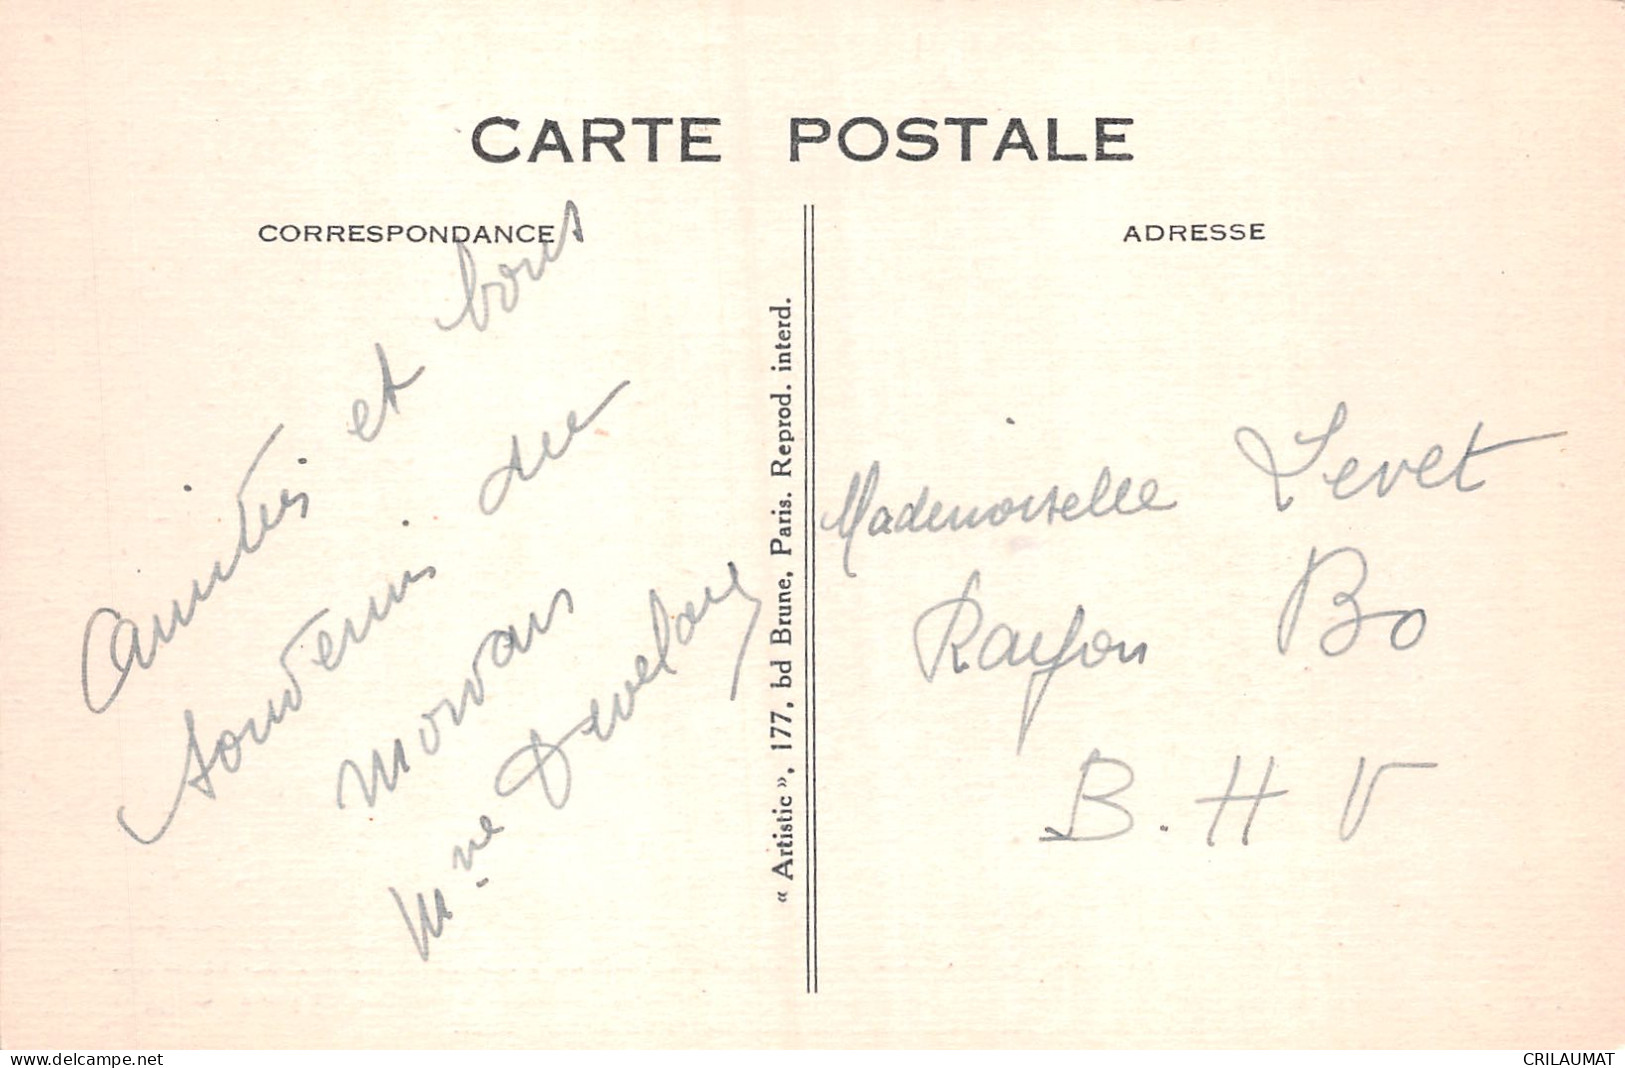 CARTE POSTALE
CORRESPONDANCE
Amitiés et bons
souvenirs du
Morvan
Mme
« Artistic », 177, bd Brune, Paris. Reprod. interd.
ADRESSE
Mademoiselle Levet
Rayon Bo
B. H V
www.delcampe.net
CRILAUMAT